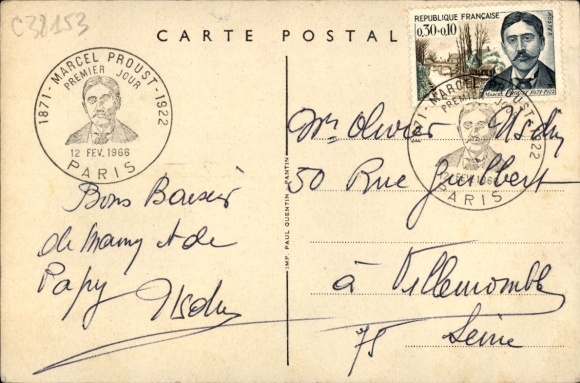 C38153
CARTE POSTALE
REPUBLIQUE FRANÇAISE
0,30+0,10
POSTES
1871 - MARCEL PROUST - 1922
PREMIER JOUR
12 FEV. 1966
PARIS
1871 - MARCEL PROUST - 1922
PREMIER JOUR
FEV. 1966
PARIS
IMP. PAUL QUENTIN PANTIN
Bons Baisers
de Mamy et de
Papy
Mr Olivier
50 Rue Guilbert
à Villemomble
75 Seine